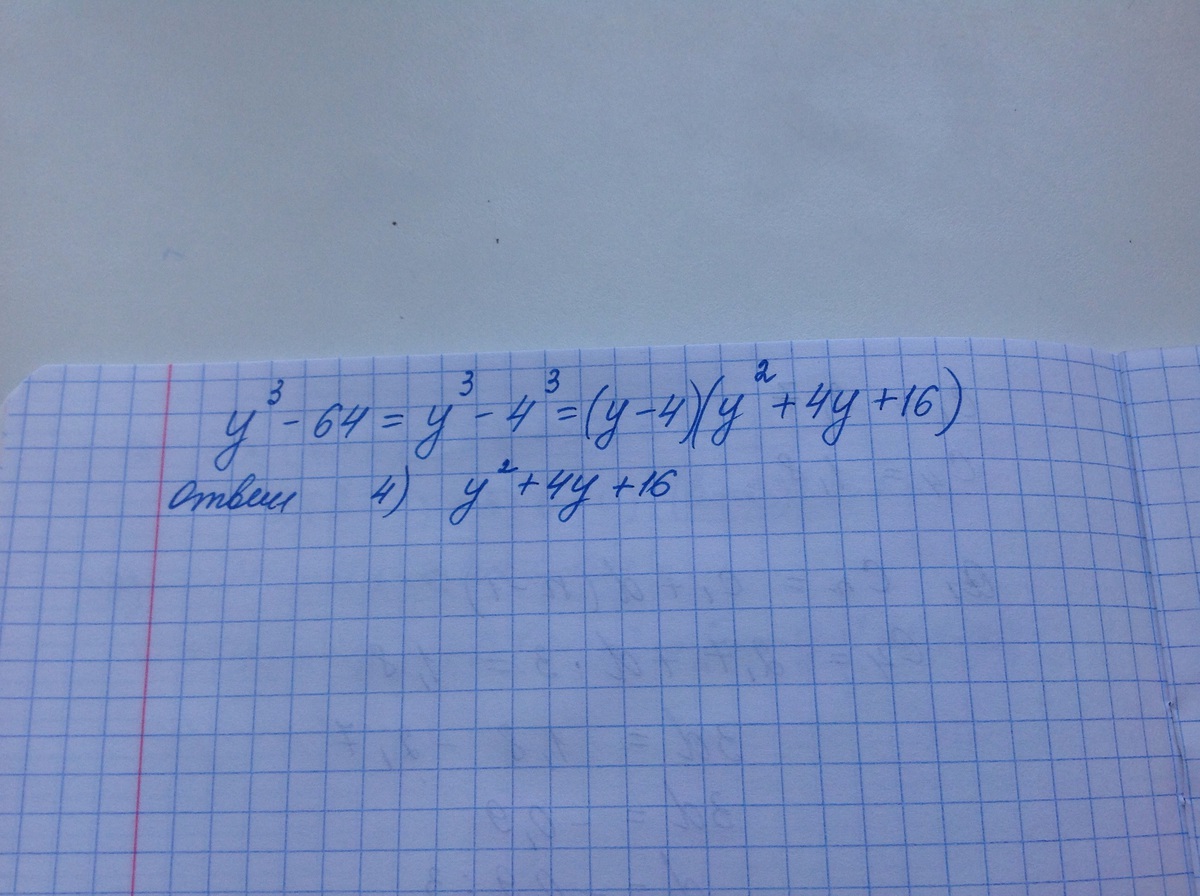 y³ - 64 = y³ - 4³ = (y - 4)(y² + 4y + 16)
ответ 4) y² + 4y + 16